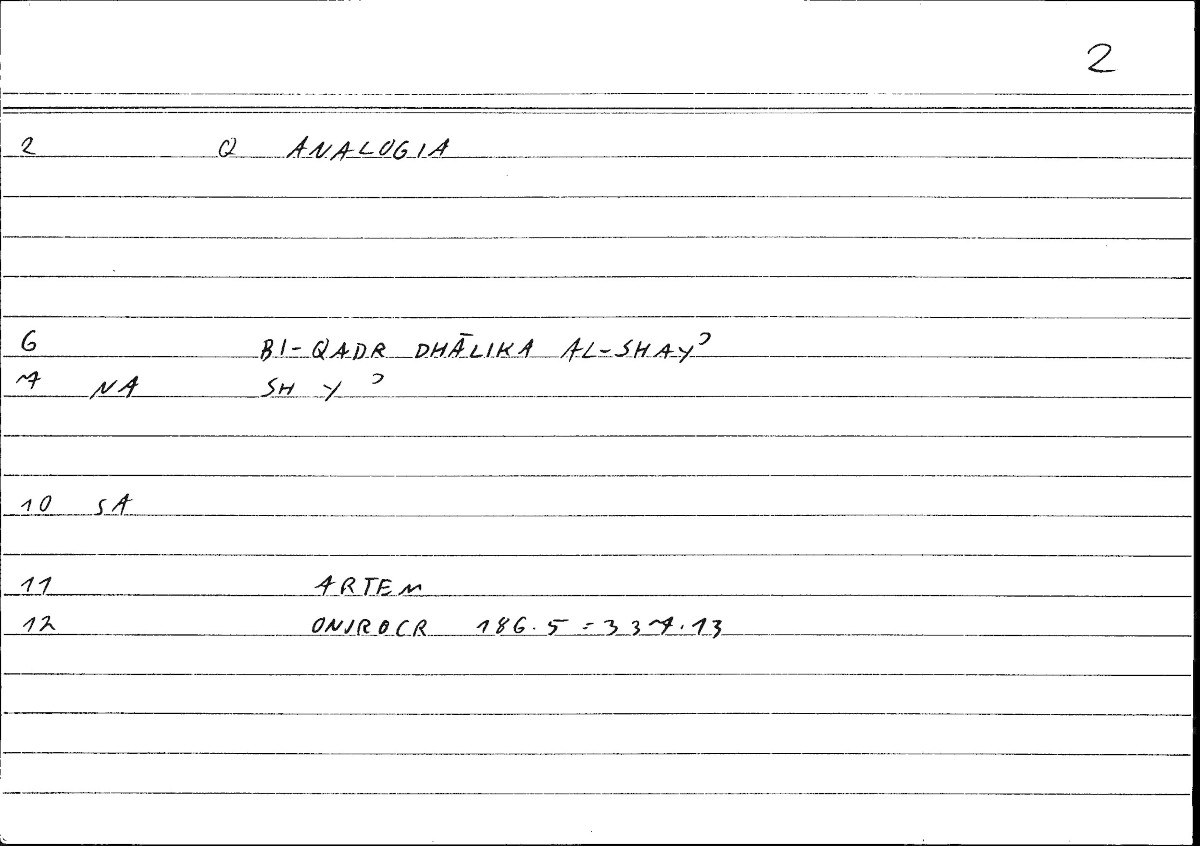 2
2 Q ANALOGIA
6 BI-QADR DHĀLIKA AL-SHAYʾ
7 NA SH Y ʾ
10 SA
11 ARTEM
12 ONIROCR 186.5=337.13